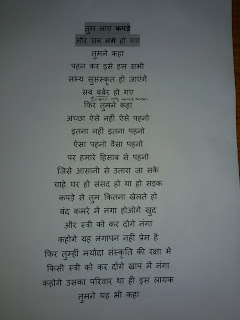 तुम लाए कपड़े
और सब नंगे हो गए
तुमने कहा
पहन कर इसे हम सभी
सभ्य सुसंस्कृत हो जाएंगें
सब बर्बर हो गए
फिर तुमने कहा
अच्छा ऐसे नहीं ऐसे पहनो
इतना नहीं इतना पहनो
ऐसा पहनो वैसा पहनो
पर हमारे हिसाब से पहनो
जिसे आसानी से उतारा जा सके
चाहे घर हो संसद हो या हो सड़क
कपड़े से तुम कितना खेलते हो
बंद कमरे में नंगा होओगे खुद
और स्त्री को कर दोगे नंगा
कहोगे यह नंगापन नहीं प्रेम है
फिर तुम्हीं मर्यादा संस्कृति की रक्षा में
किसी स्त्री को कर दोगे खाप में नंगा
कहोगे उसका परिवार था ही इस लायक
तुमने यह भी कहा